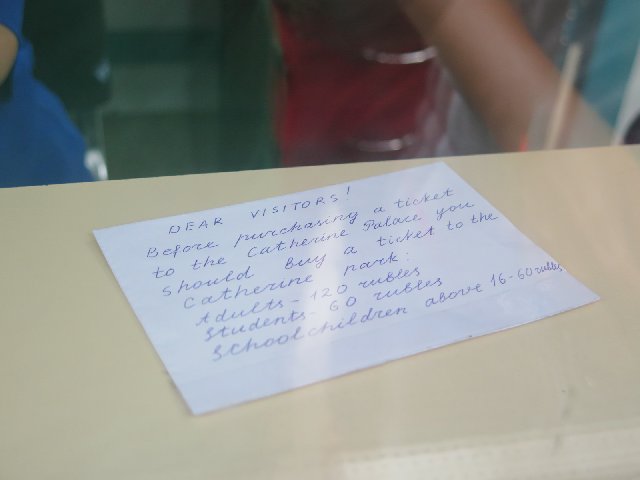 DEAR VISITORS!
Before purchasing a ticket
to the Catherine Palace you
should buy a ticket to the
Catherine park:
Adults - 120 rubles
Students - 60 rubles
Schoolchildren above 16 - 60 rubles